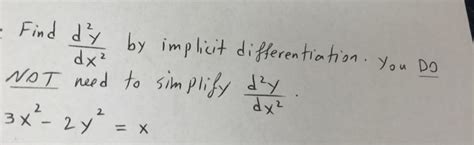 Find d²y/dx² by implicit differentiation. You DO
NOT need to simplify d²y/dx².
3x² - 2y² = x